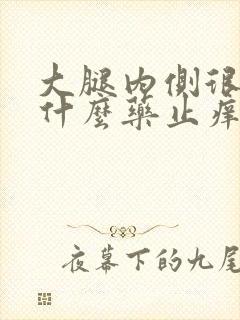 大腿内側很
什麼藥止痒
夜幕下的九尾